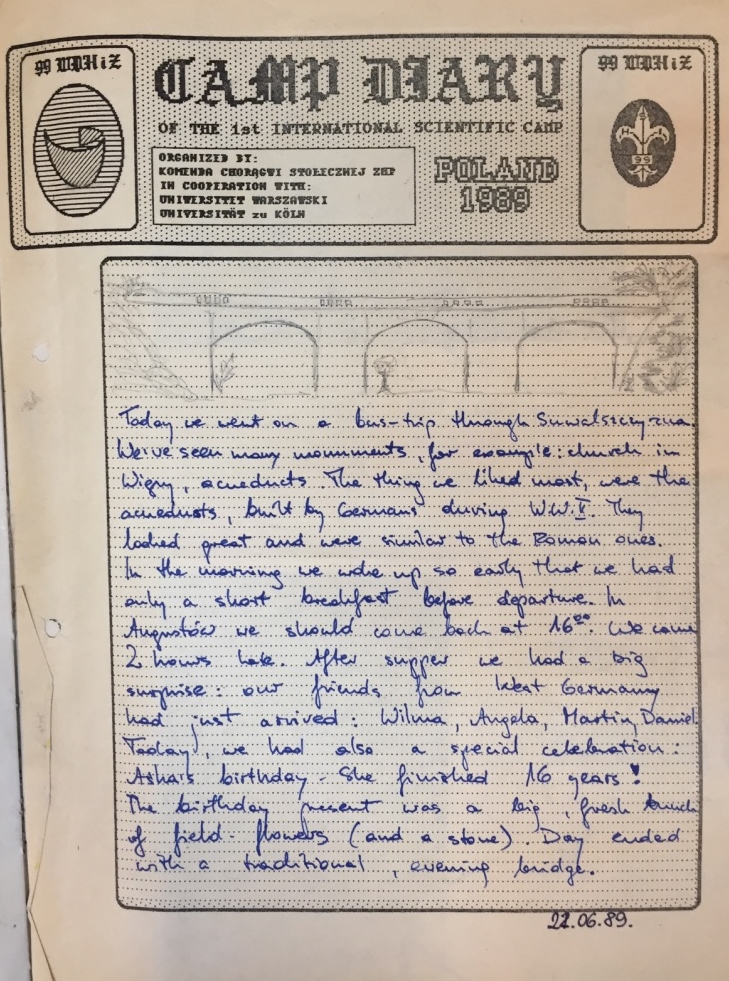 99 WDHiZ
CAMP DIARY
99 WDHiZ
OF THE 1st INTERNATIONAL SCIENTIFIC CAMP
ORGANIZED BY:
KOMENDA CHORĄGWI STOŁECZNEJ ZHP
IN COOPERATION WITH:
UNIWERSYTET WARSZAWSKI
UNIVERSITÄT zu KÖLN
POLAND
1989
99
Today we went on a bus-trip through Suwalszczyzna.
We've seen many monuments, for example: church in
Wigry, acueducts. The thing we liked most, were the
acueducts, built by Germans during W.W.
They
looked great and were similar to the Roman ones.
In the morning we woke up so early that we had
only a short breakfast before departure. In
Augustów we should come back at 16⁰⁰. We came
2 hours late. After supper we had a big
surprise: our friends from West Germany
had just arrived: Wilma, Angela, Martin, Daniel.
Today, we had also a special celebration:
Asha's birthday - She finished 16 years!
The birthday present was a big, fresh bunch
of field-flowers (and a stone). Day ended
with a traditional, evening bridge.
22.06.89.